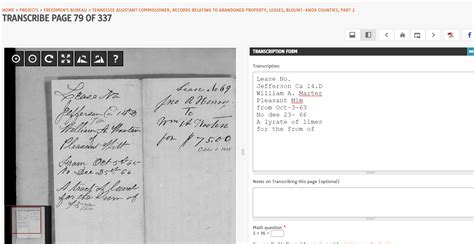 HOME > PROJECTS > FREEDMEN'S BUREAU > TENNESSEE ASSISTANT COMMISSIONER, RECORDS RELATING TO ABANDONED PROPERTY, LEASES, BLOUNT-KNOX COUNTIES, PART 2
TRANSCRIBE PAGE 79 OF 337
Lease No
Jefferson Co 14th D
William A.
Pleasant
From Oct 5th 65
to Dec 25th 66
A tract of land
for the sum of
Lease No 69
Jno A Henry
To
Wm A
for $75.00
TRANSCRIPTION FORM
Transcription
Lease No.
Jefferson Ca 14.D
William A. Marter
Pleasant Mim
from Oct-3-63
No dee 23- 66
A lyrate of limes
for the from of
Notes on Transcribing this page (optional)
Math question *
1 + 15 =